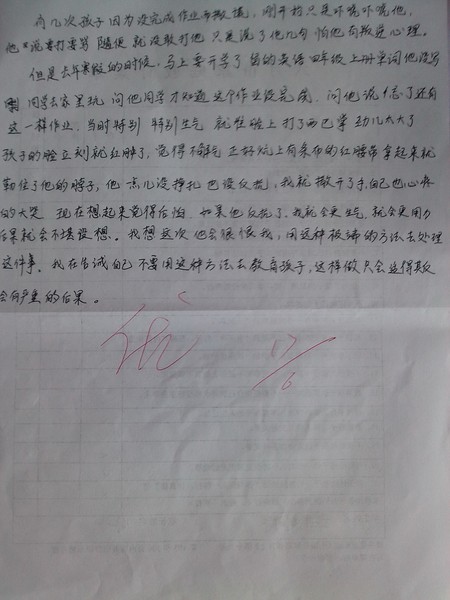 有几次孩子因为没完成作业而撒谎，刚开始只是吓唬吓唬他，
他说要打要骂随便 就没敢打他 只是说了他几句 怕他有叛逆心理。
但是去年寒假的时候，马上要开学了 留的英语四年级上册单词他没写
同学去家里玩 问他同学才知道 这个作业没完成．问他 说忘了还有
这一样作业．当时特别 特别生气 就在脸上打了两巴掌 劲儿太大了
孩子的脸立刻就红肿了，觉得不解气 正好炕上有条布的红腰带 拿起来就
勒住了他的脖子，他一点儿没挣扎 也没反抗，我就撒开了手，自己也心疼
的大哭 现在想起来觉得后怕．如果他反抗了．我就会更生气．就会更用力
后果就会不堪设想。我想这次他会很恨我，用这种极端的方法去处理
这件事．我在告诫自己 不要用这种方法去教育孩子，这样做只会适得其反
会有严重的后果。
优 17/6